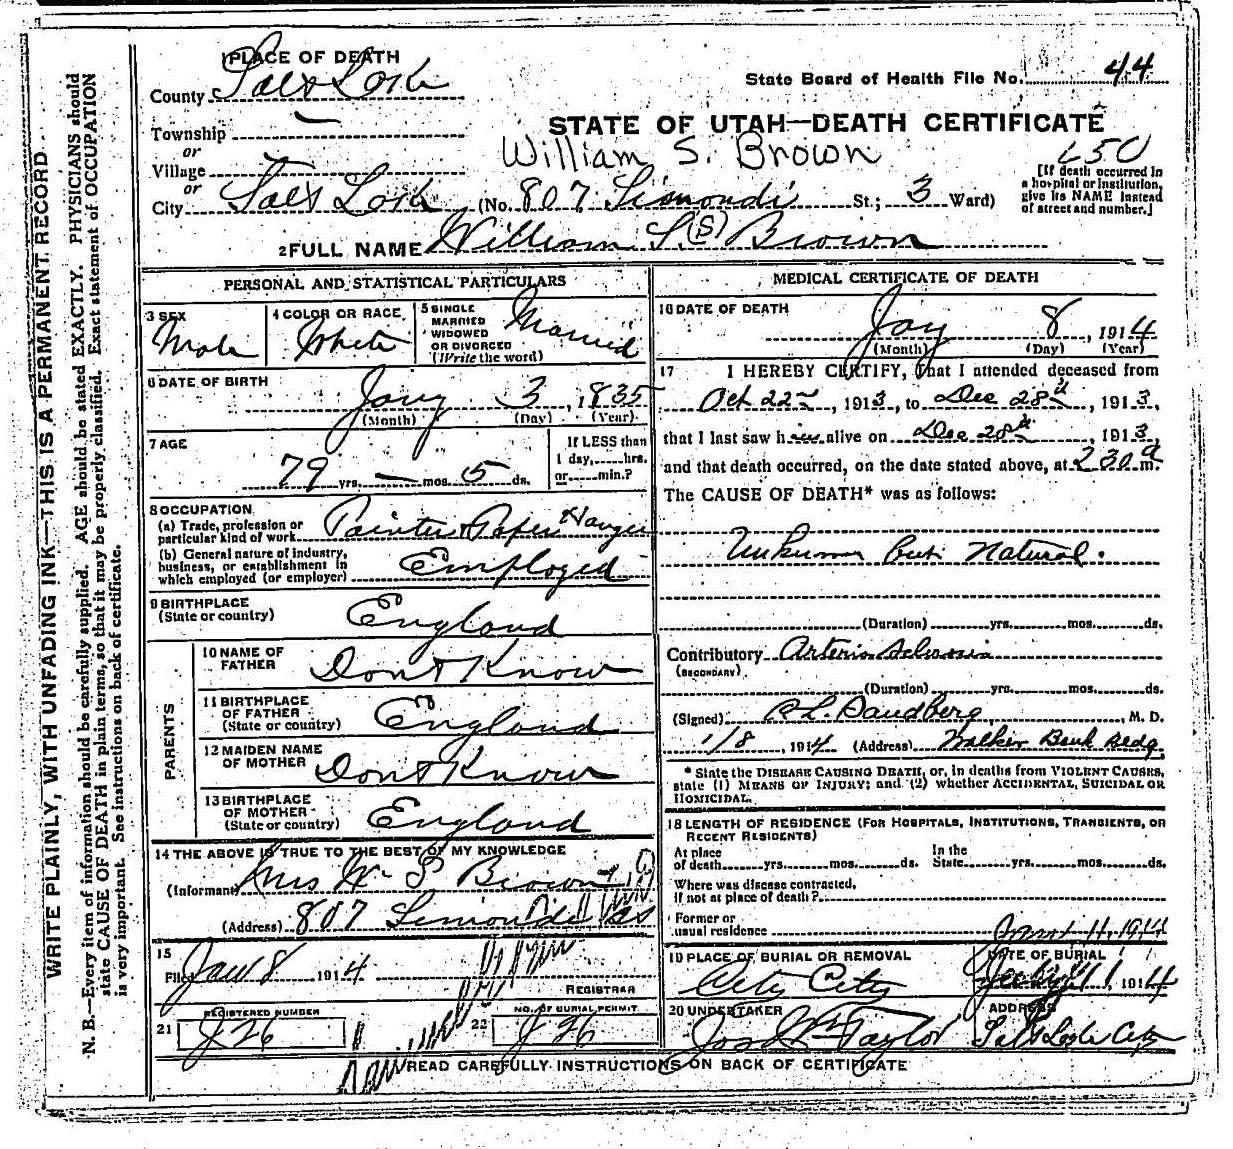 1 PLACE OF DEATH
State Board of Health File No. 44
County Salt Lake
STATE OF UTAH—DEATH CERTIFICATE
Township —
or
William S. Brown
Village
or
[If death occurred in
a hospital or institution,
give its NAME instead
of street and number.]
City Salt Lake (No. 807 Simondi St.; 3 Ward)
2 FULL NAME William S. (S) Brown
PERSONAL AND STATISTICAL PARTICULARS
3 SEX
Male
4 COLOR OR RACE
White
5 SINGLE
MARRIED
WIDOWED
OR DIVORCED
(Write the word)
Married
6 DATE OF BIRTH
Jany 3, 1835
(Month) (Day) (Year)
7 AGE
79 yrs. — mos. 5 ds.
If LESS than
1 day, hrs.
or min.?
8 OCCUPATION
(a) Trade, profession or
particular kind of work Painter & Paper Hanger
(b) General nature of industry,
business, or establishment in
which employed (or employer) Employed
9 BIRTHPLACE
(State or country) England
PARENTS
10 NAME OF
FATHER Dont Know
11 BIRTHPLACE
OF FATHER
(State or country) England
12 MAIDEN NAME
OF MOTHER Dont Know
13 BIRTHPLACE
OF MOTHER
(State or country) England
14 THE ABOVE IS TRUE TO THE BEST OF MY KNOWLEDGE
(Informant) Mrs Wm S Brown
(Address) 807 Simondi
15
Filed Jan 8 1914
REGISTRAR
REGISTERED NUMBER
21 J 26
NO. OF BURIAL PERMIT
22 J 26
MEDICAL CERTIFICATE OF DEATH
16 DATE OF DEATH
Jany 8, 1914
(Month) (Day) (Year)
17 I HEREBY CERTIFY, That I attended deceased from
Oct 22nd, 1913, to Dec 28th, 1913,
that I last saw him alive on Dec 28th, 1913,
and that death occurred, on the date stated above, at 2 30 a m.
The CAUSE OF DEATH* was as follows:
Unknown but Natural.
(Duration) yrs. mos. ds.
Contributory Arterio Sclerosis
(SECONDARY)
(Duration) yrs. mos. ds.
(Signed) Sandberg, M. D.
1/8, 1914 (Address) Walker Bank Bldg.
* State the DISEASE CAUSING DEATH, or, in deaths from VIOLENT CAUSES,
state (1) MEANS OF INJURY; and (2) whether ACCIDENTAL, SUICIDAL OR
HOMICIDAL.
18 LENGTH OF RESIDENCE (FOR HOSPITALS, INSTITUTIONS, TRANSIENTS, OR
RECENT RESIDENTS)
At place
of death yrs. mos. ds.
In the
State yrs. mos. ds.
Where was disease contracted,
if not at place of death?
Former or
usual residence
19 PLACE OF BURIAL OR REMOVAL
City Cety
DATE OF BURIAL
1914
20 UNDERTAKER
Jos Wm Taylor
ADDRESS
Salt Lake City
READ CAREFULLY INSTRUCTIONS ON BACK OF CERTIFICATE
WRITE PLAINLY, WITH UNFADING INK—THIS IS A PERMANENT RECORD
N. B.—Every item of information should be carefully supplied. AGE should be stated EXACTLY. PHYSICIANS should
state CAUSE OF DEATH in plain terms, so that it may be properly classified. Exact statement of OCCUPATION
is very important. See instructions on back of certificate.